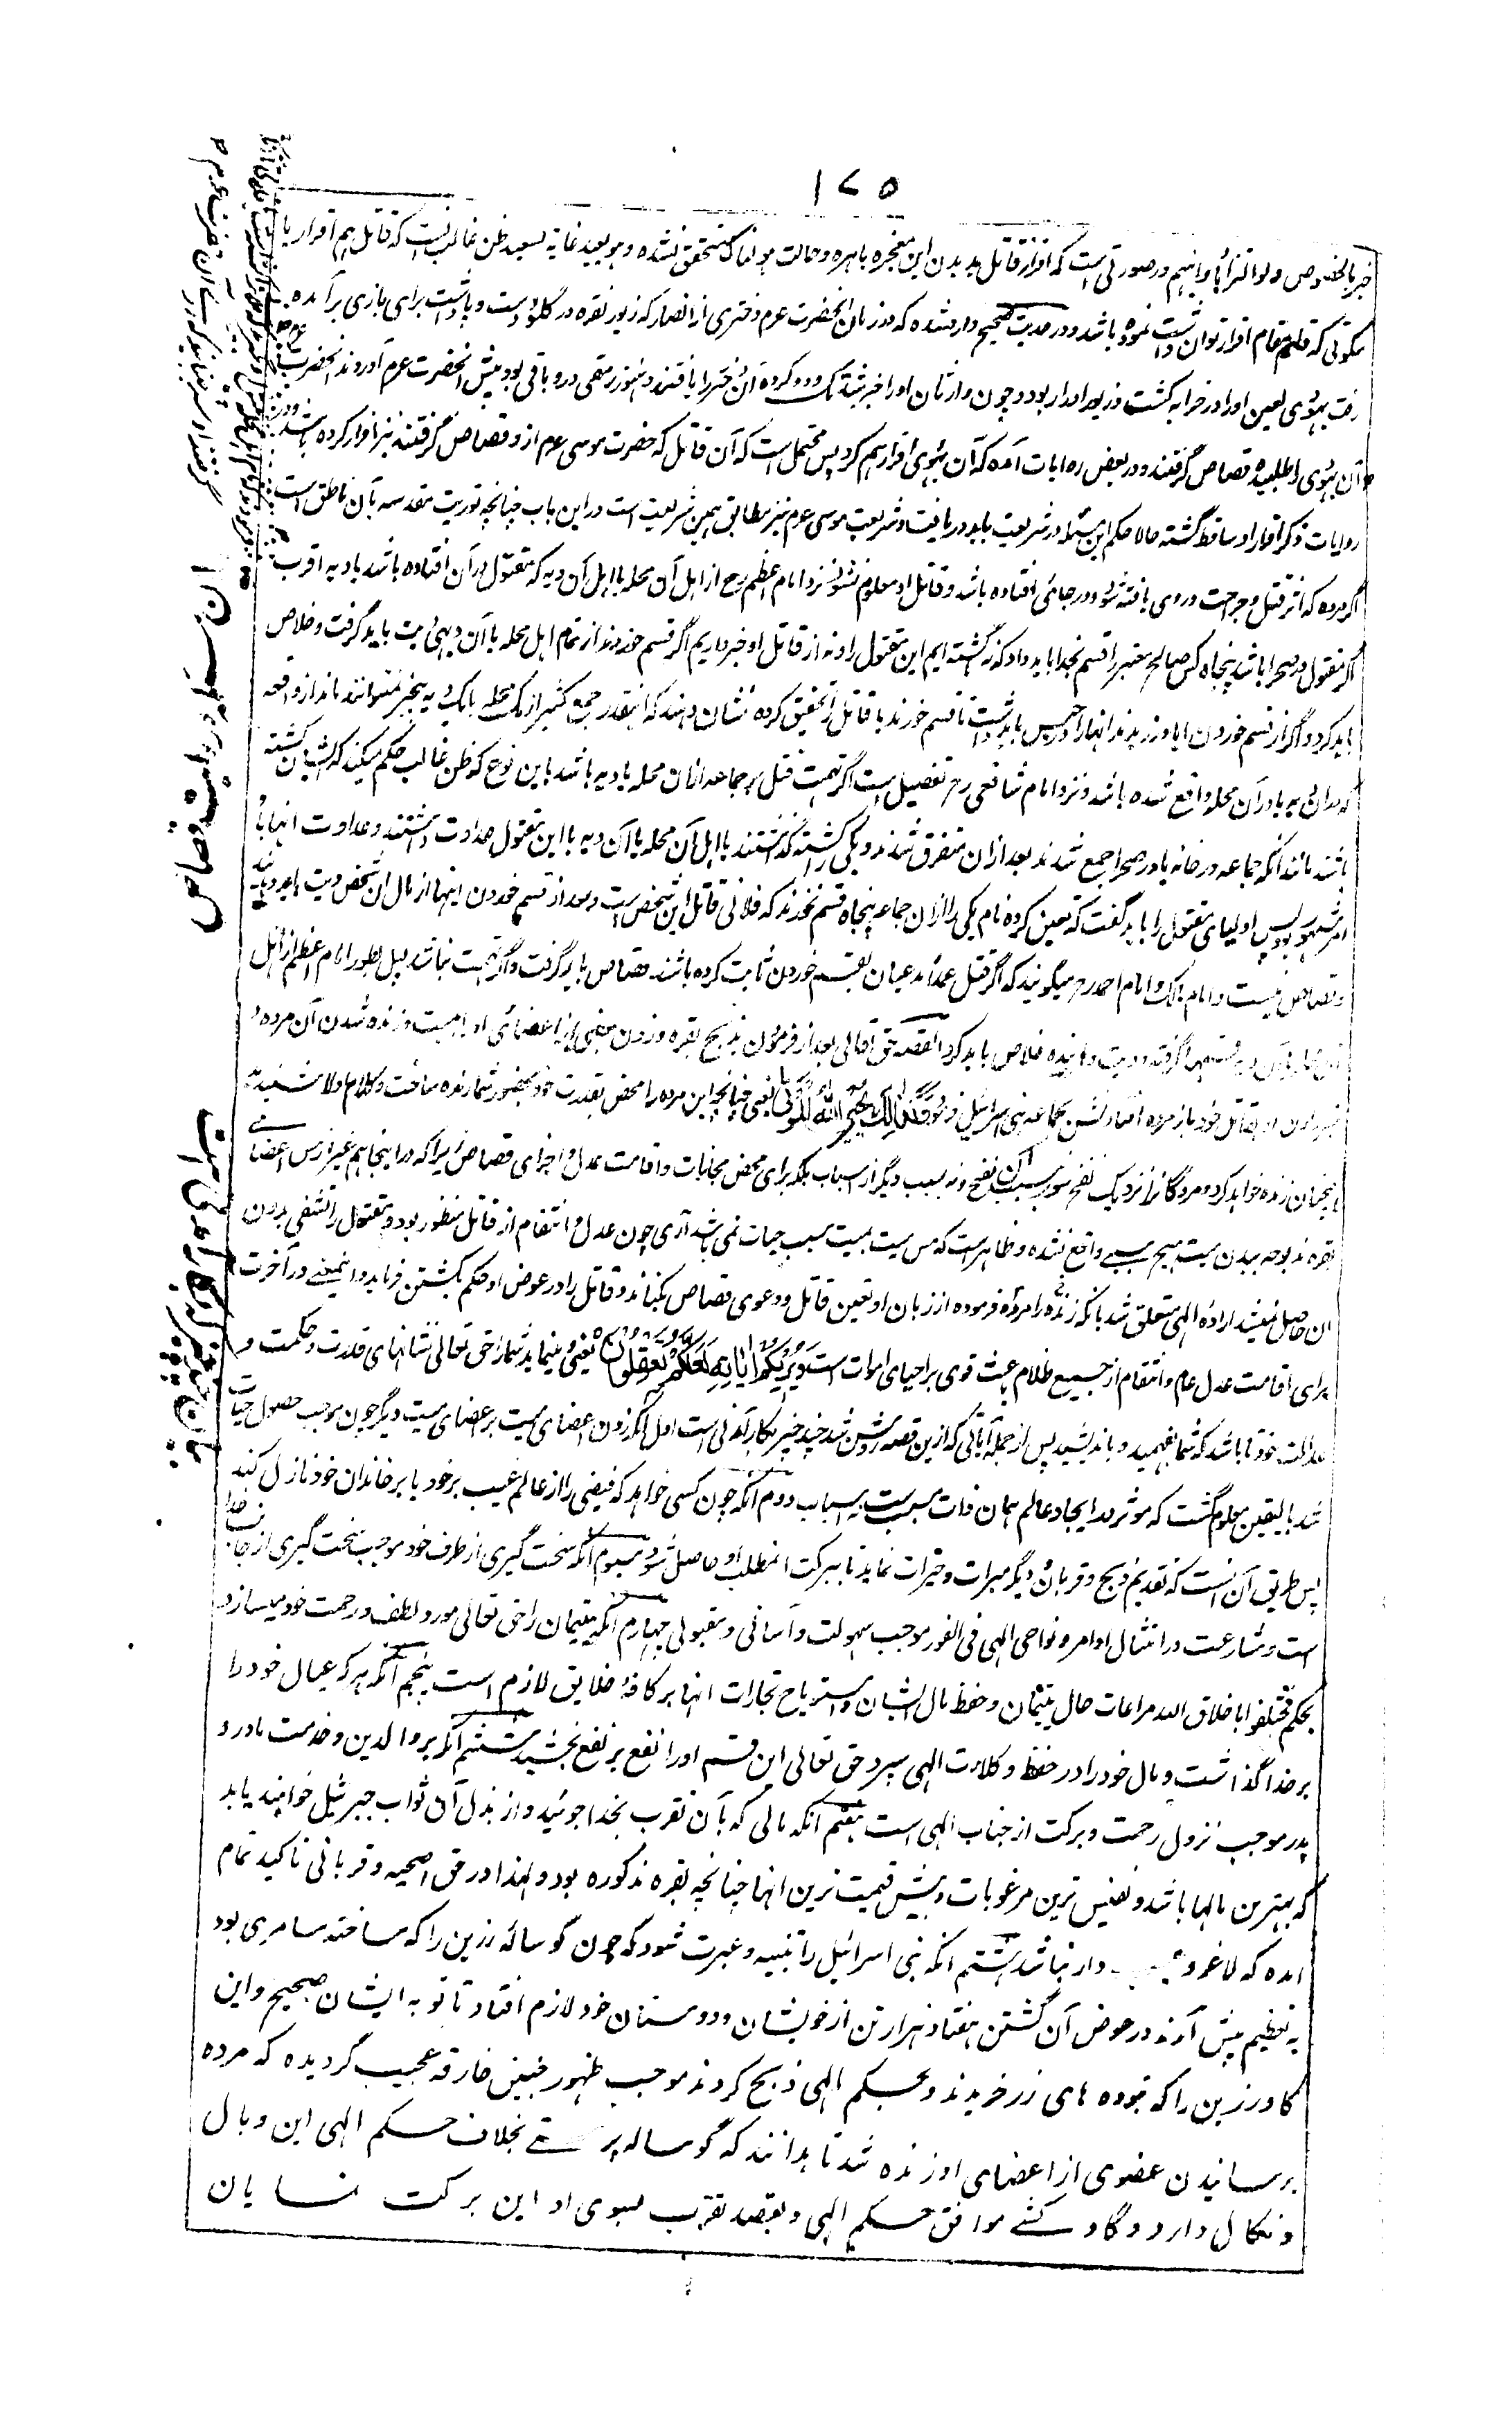 ۱۷۵
خبر بالخصوص ولو التزاماً و اینهم در صورتی است که اقرار قاتل بدیدن این معجزه باهره و حالت هولناک متحقق نشده و هو بعید غایة البعید ظن غالب اینست که قاتل هم اقرار یا
سکوتی که قایم مقام اقرار توان داشت نموده باشد و در حدیث صحیح وارد شده که در زمان آنحضرت عرم دختری از انصار که زیور نقره در گلو و دست و پا داشت برای بازی برآمده
رفت یهودی لعین او را در خرابه کشت و زیور او را ربود و چون وارثان او را خبر شد تگ و دو کرده آن دختر را یافتند و هنوز رمقی درو باقی بود پیش آنحضرت عرم آوردند آنحضرت عرم
آن یهودی را طلبیده قصاص گرفتند و در بعض روایات آمده که آن یهودی اقرار هم کرد پس محتمل است که آن قاتل که حضرت موسی عرم ازو قصاص گرفتند نیز اقرار کرده باشد و در
روایات ذکر اقرار او ساقط گشته حالا حکم این مسئله در شریعت باید دریافت و شریعت موسی عرم نیز مطابق همین شریعت است در این باب چنانچه توریت مقدسه بآن ناطق است
اگر مرده که اثر قتل و جراحت در وی یافته شود و در جائی افتاده باشد و قاتل او معلوم نشود نزد امام اعظم رح از اهل آن محله یا اهل آن دیه که مقتول در آن افتاده باشد یا دیه اقرب
اگر مقتول در صحرا باشد پنجاه کس صالح معتبر را قسم بخدا باید داد که نه کشته ایم این مقتول را و نه از قاتل او خبر داریم اگر قسم خوردند از تمام اهل محله یا آن دیه دیت باید گرفت و خلاص
باید کرد و اگر از قسم خوردن ابا ورزیدند انها را در حبس باید داشت تا قسم خورند یا قاتل را تحقیق کرده نشان دهند که اینقدر جمع کثیر از یک محله یا یک دیه بیخبر نمیتوانند ماند از واقعه
که در آن دیه یا در آن محله واقع شده باشد و نزد امام شافعی رح تفصیل است اگر تهمت قتل بر جماعه ازان محله یا دیه باشد باین نوع که ظن غالب حکم میکند که ایشان کشته
باشند مانند آنکه جماعه در خانه یا در صحرا جمع شدند بعد ازان متفرق شدند و یکی را کشته گذاشتند یا اهل آن محله یا آن دیه با این مقتول عداوت داشتند و عداوت انها با
او مشهور بود پس اولیای مقتول را باید گفت که تعین کرده نام یکی را ازان جماعه پنجاه قسم بخورند که فلانی قاتل این شخص است و بعد از قسم خوردن اینها از مال آن شخص دیت باید دهانید
و قصاص نیست و امام مالک و امام احمد رح میگویند که اگر قتل عمداً مدعیان بقسم خوردن ثابت کرده باشند قصاص باید گرفت و اگر تهمت نباشد پس بطور امام اعظم از اهل
دیه قسمها گرفته و دیت دهانیده خلاص باید کرد القصه حق تعالی بعد از فرمودن بذبح بقره و زدن بعضی از اعضای او با میت و زنده شدن آن مرده و
خبر دادن او بقاتل خود باز مرده افتادنش بجماعه بنی اسرائیل فرمود كَذٰلِكَ يُحْيِي اللّٰهُ الْمَوْتٰى یعنی چنانچه این مرده را محض بقدرت خود بحضور شما زنده ساخت و کلام او را شنیدید
همچنان زنده خواهد کرد مردگان را نزدیک نفخ صور نه بسبب آن نفخ و نه بسبب دیگر از اسباب بلکه برای محض مجازات و اقامت عدل و اجرای قصاص زیرا که در اینجا هم غیر از مس اعضای
بقره مذبوحه ببدن میت هیچ سببی واقع نشده و ظاهر است که مس میت بمیت سبب حیات نمی باشد آری چون عدل و انتقام از قاتل منظور بود و مقتول را تشفی بدون
آن حاصل نمیشد ارادهٔ الهی متعلق شد بآنکه زنده را مرده فرموده از زبان او تعین قاتل و دعوی قصاص بکناند و قاتل را در عوض او حکم بکشتن فرماید و اینمعنی در آخرت
برای اقامت عدل عام و انتقام از جمیع ظلام باعث قوی بر احیای اموات است وَيُرِيكُمْ آيَاتِهِ لَعَلَّكُمْ تَعْقِلُونَ یعنی و مینماید شما را حق تعالی نشانهای قدرت و حکمت و
عدالت خود تا باشد که شما بفهمید و بدانید پس از جمله آیاتی که ازین قصه روشن شد چند چیز بکار آمدنی است اول آنکه زدن اعضای میت بر اعضای میت دیگر چون موجب حصول حیات
شد بالیقین معلوم گشت که موثر در ایجاد عالم همان ذات مسبب است نه اسباب دوم آنکه چون کسی خواهد که فیضی را از عالم غیب بر خود یا بر خاندان خود نازل کند
پس طریق آن اینست که تقدیم ذبح و قربان و دیگر مبرات و خیرات نماید تا ببرکت آن مطلب او حاصل شود سیوم آنکه سخت گیری از طرف خود موجب سخت گیری از جانب خدا
است و مسارعت در امتثال اوامر و نواحی الهی فی الفور موجب سهولت و آسانی و مقبولی چهارم آنکه یتیمان را حق تعالی مورد لطف و رحمت خود میسازد
بحکم تخلقوا باخلاق الله مراعات حال یتیمان و حفظ مال ایشان و استرباح تجارات انها بر کافهٔ خلایق لازم است پنجم آنکه هر که عیال خود را
بر خدا گذاشت و مال خود را در حفظ و کلاءت الهی سپرد حق تعالی این قسم او را نفع بر نفع بخشید ششم آنکه بر والدین و خدمت مادر و
پدر موجب نزول رحمت و برکت از جناب الهی است هفتم انکه مالی که بآن تقرب بخدا جوئید و از بذل آن ثواب جزیل خواهند باید
که بهترین مالها باشد و نفیس ترین مرغوبات و بیش قیمت ترین انها چنانچه بقره مذکوره بود و لهذا در حق اضحیه و قربانی تاکید تمام
امده که لاغر و دار نباشد هشتم انکه بنی اسرائیل را تنبیه و عبرت شود که چون گوساله زرین را که ساخته سامری بود
به تعظیم پیش آمدند در عوض آن کشتن هفتاد هزار تن از خویشان و دوستان خود لازم افتاد تا توبه ایشان صحیح و این
گاو زرین را که بتوده های زر خریدند و بحکم الهی ذبح کردند موجب ظهور چنین خارقه عجیب گردیده که مرده
برسانیدن عضوی از اعضای او زنده شد تا بدانند که گوساله پرستی بخلاف حکم الهی این وبال
و نکال دارد و گاو کشی موافق حکم الهی و بقصد تقرب بسوی او این برکت نمایان